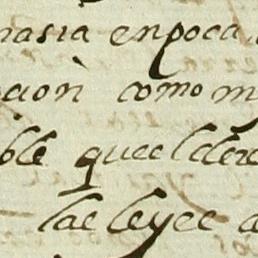 nasia enpoca
cion como m
ble queeldere
lacleyec a